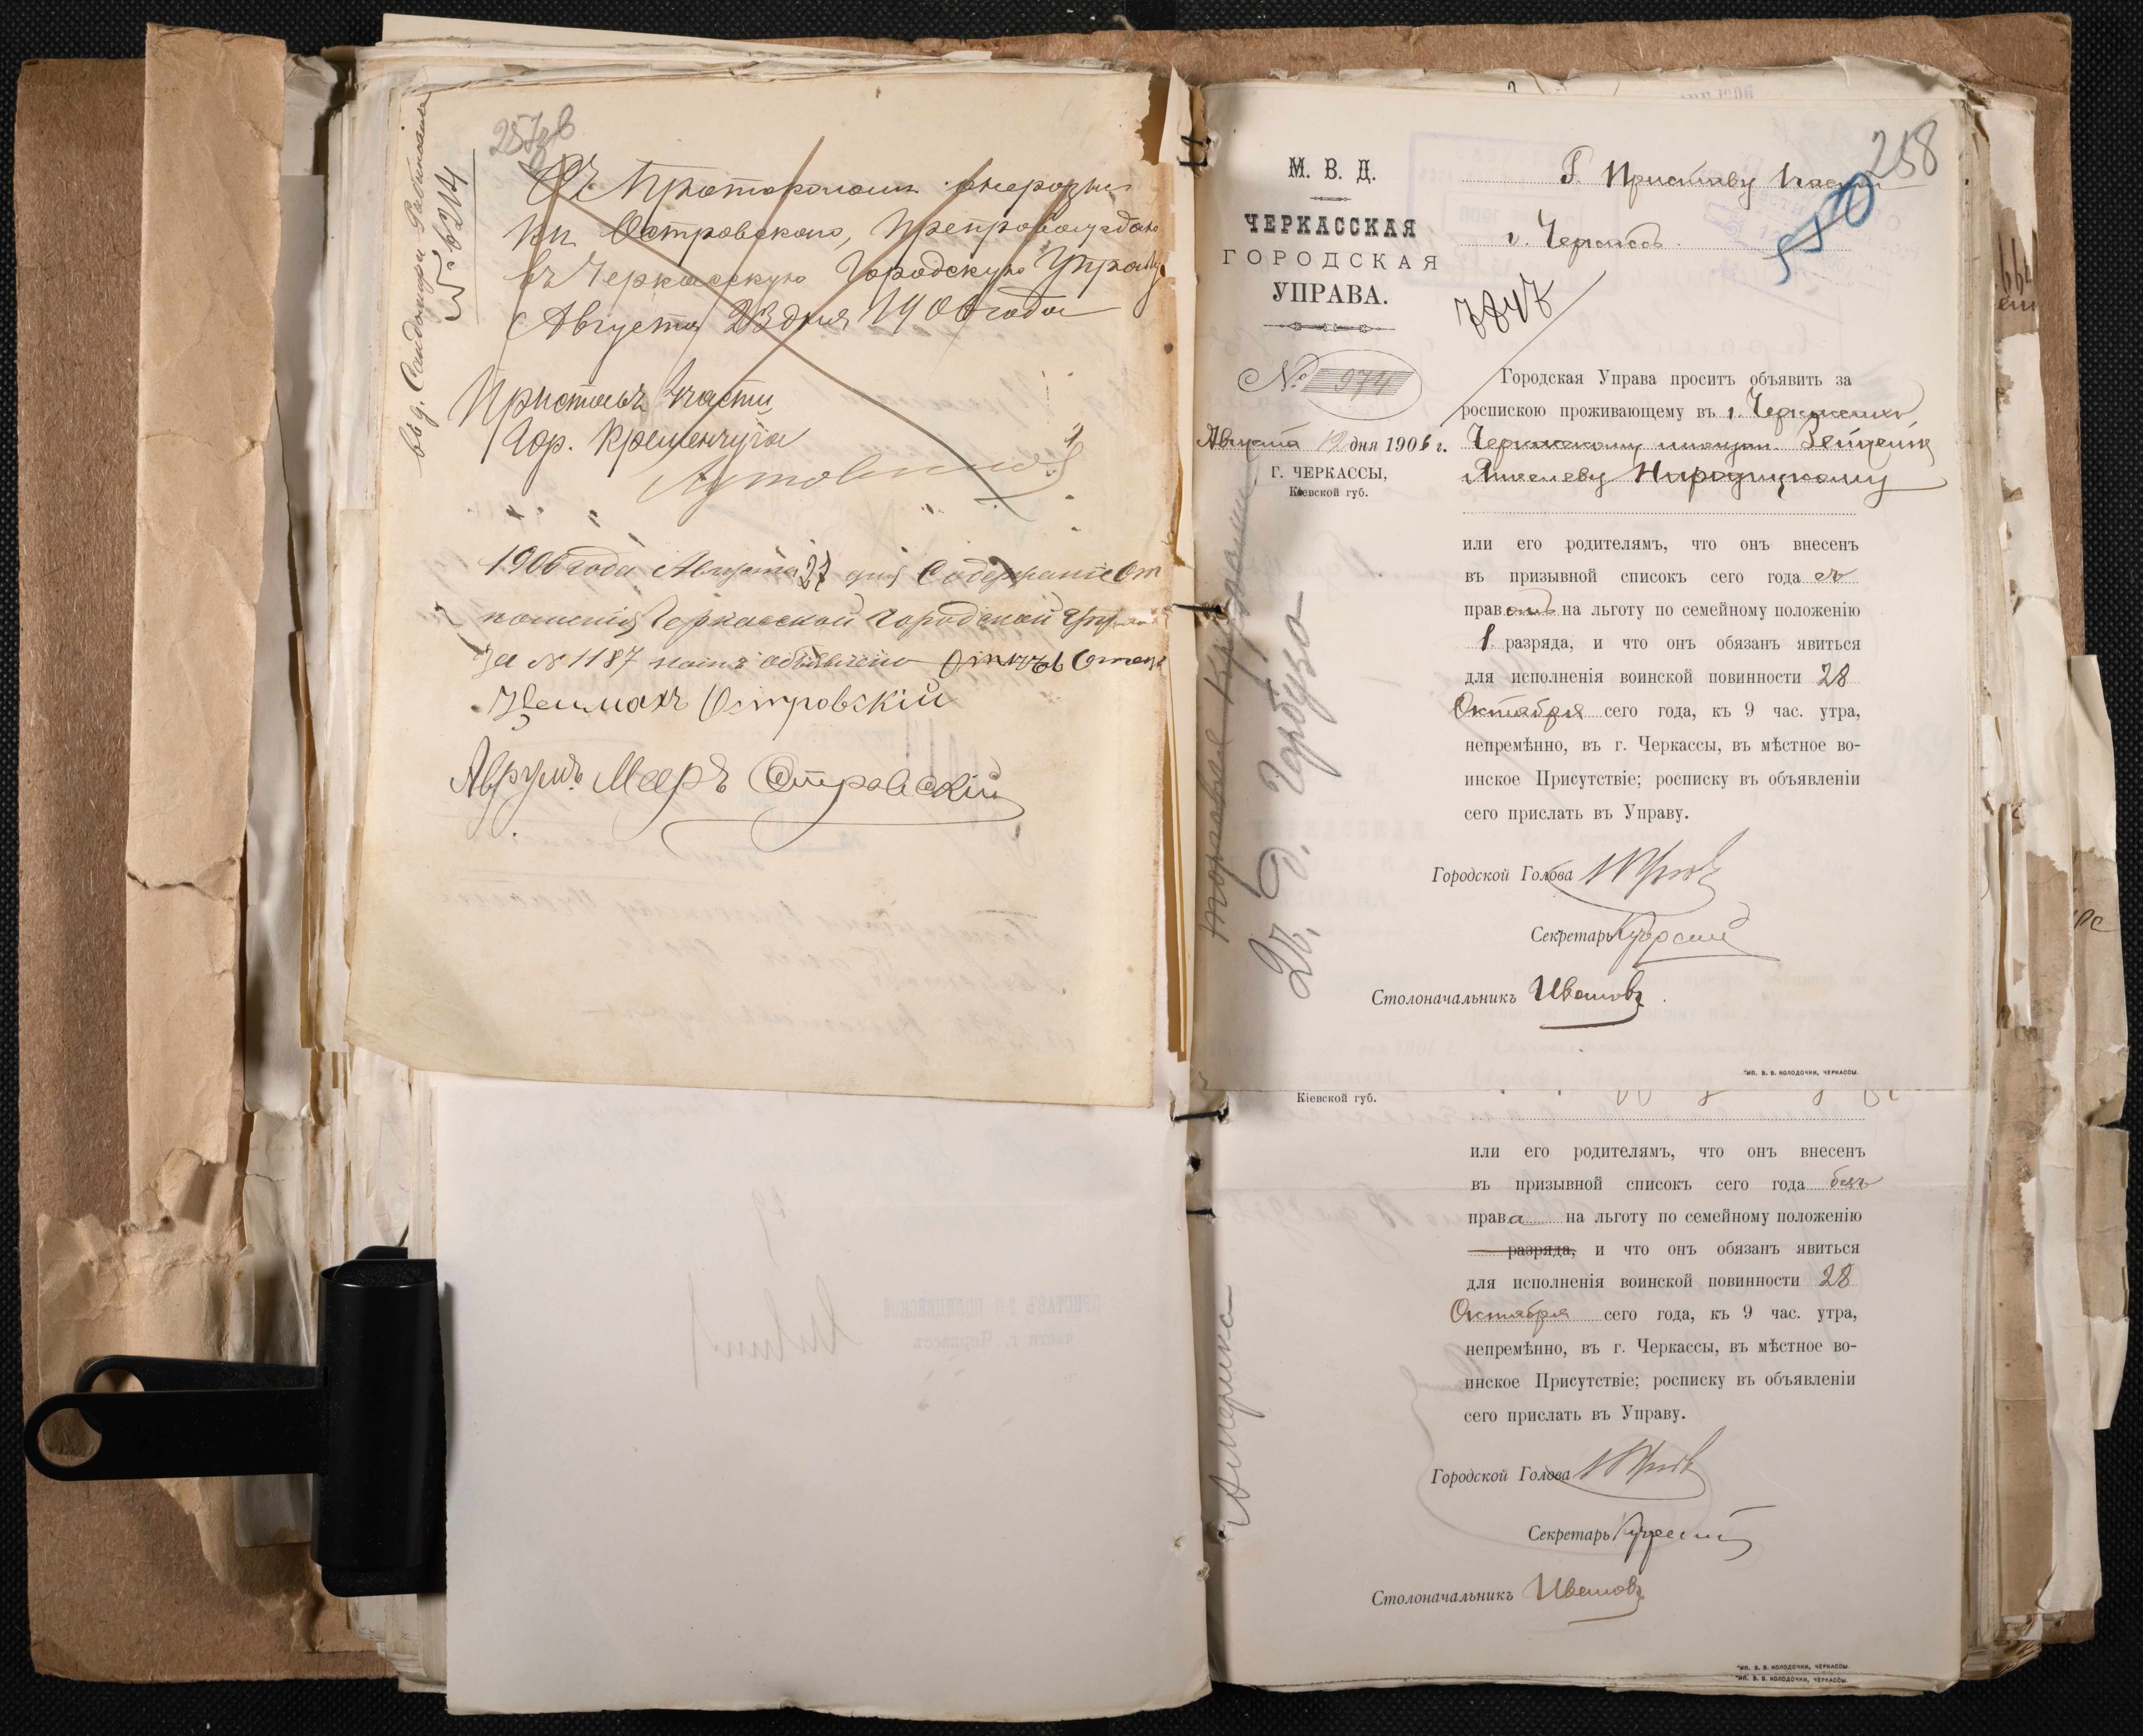 257 об
Съ протоколомъ
Островскаго, препровождаю
въ Черкасскую Городскую Управу
Августа 23 дня 1906 года
Приставъ 2 части
Гор. Кременчуга
№ 6214
1906 года Августа 27 дня Содержаніе От
ношенія Черкасской Городской Управы
За № 1187 намъ объявлено
Нецмахъ Островскій
Аврумъ Мееръ Островскій
258
М. В. Д.
ЧЕРКАССКАЯ
ГОРОДСКАЯ
УПРАВА.
№ 974
Августа 12 дня 1906 г.
Г. ЧЕРКАССЫ,
Кіевской губ.
Г. Приставу части
г. Черкассъ.
7847
Городская Управа проситъ объявить за
роспискою проживающему въ г. Черкассахъ
Черкасскому мѣщан.
Янкелеву
или его родителямъ, что онъ внесенъ
въ призывной списокъ сего года съ
правомъ на льготу по семейному положенію
1 разряда, и что онъ обязанъ явиться
для исполненія воинской повинности 28
Октября сего года, къ 9 час. утра,
непремѣнно, въ г. Черкассы, въ мѣстное во-
инское Присутствіе; росписку въ объявленіи
сего прислать въ Управу.
Городской Голова
Секретарь
Столоначальникъ Ивановъ
д. Гарбуза
ТИП. В. В. КОЛОДОЧКИ, ЧЕРКАССЫ.
Кіевской губ.
или его родителямъ, что онъ внесенъ
въ призывной списокъ сего года безъ
права на льготу по семейному положенію
разряда, и что онъ обязанъ явиться
для исполненія воинской повинности 28
Октября сего года, къ 9 час. утра,
непремѣнно, въ г. Черкассы, въ мѣстное во-
инское Присутствіе; росписку въ объявленіи
сего прислать въ Управу.
Городской Голова
Секретарь
Столоначальникъ Ивановъ
Америка
ТИП. В. В. КОЛОДОЧКИ, ЧЕРКАССЫ
ТИП. В. В. КОЛОДОЧКИ, ЧЕРКАССЫ